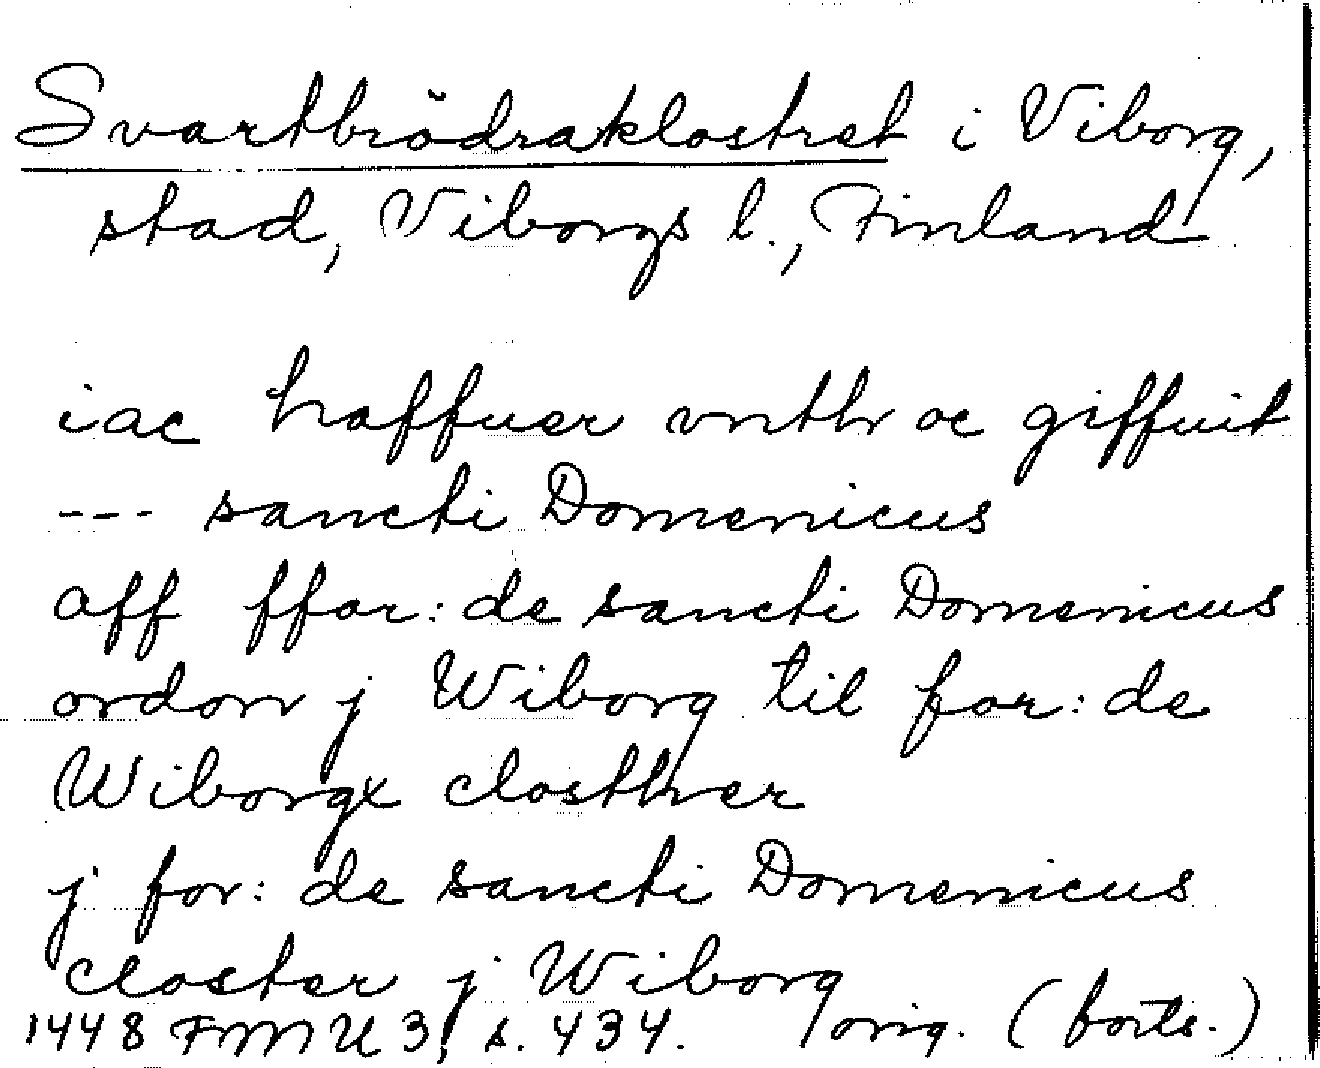 Svartbrödraklostret i Viborg,
stad, Viborgs l., Finland
iac haffuer vnth oc giffuit
--- sancti Domenicus
aff ffor: de sancti Domenicus
ordon j Wiborg til for: de
Wiborgx closther
j for: de sancti Domenicus
closter j Wiborg
1448 FMU 3, s. 434. orig. (forts.)